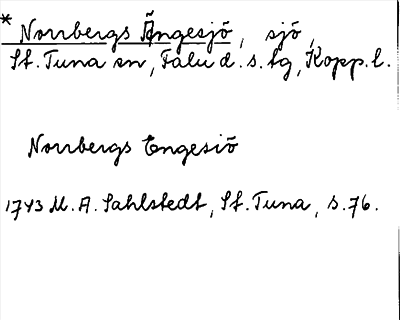 * Norrbergs Ängesjö, sjö,
St. Tuna sn, Falu d. s. tg, Kopp. l.
Norrbergs Engesiö
1743 M. A. Sahlstedt, St. Tuna, s. 76.